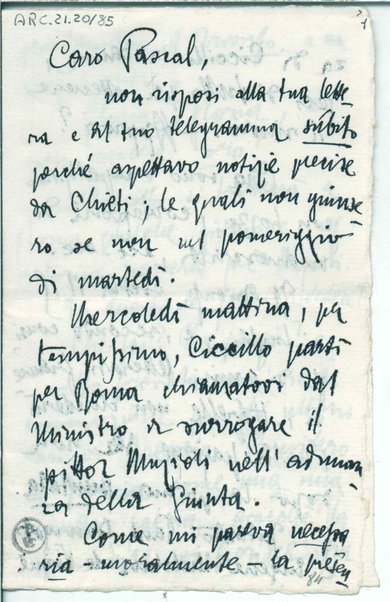 ARC.21.20/85
Caro Pascal,
non risposi alla tua lette-
ra e al tuo telegramma subito
perché aspettavo notizie precise
da Chieti; le quali non giunse-
ro se non nel pomeriggio
di martedì.
Mercoledì mattina, per
tempissimo, Ciccillo partì
per Roma chiamatovi dal
Ministro a surrogare il
pittor Muzioli nell'adunan-
za della Giunta.
Come mi pareva necessa-
ria - moralmente - la presen-
84